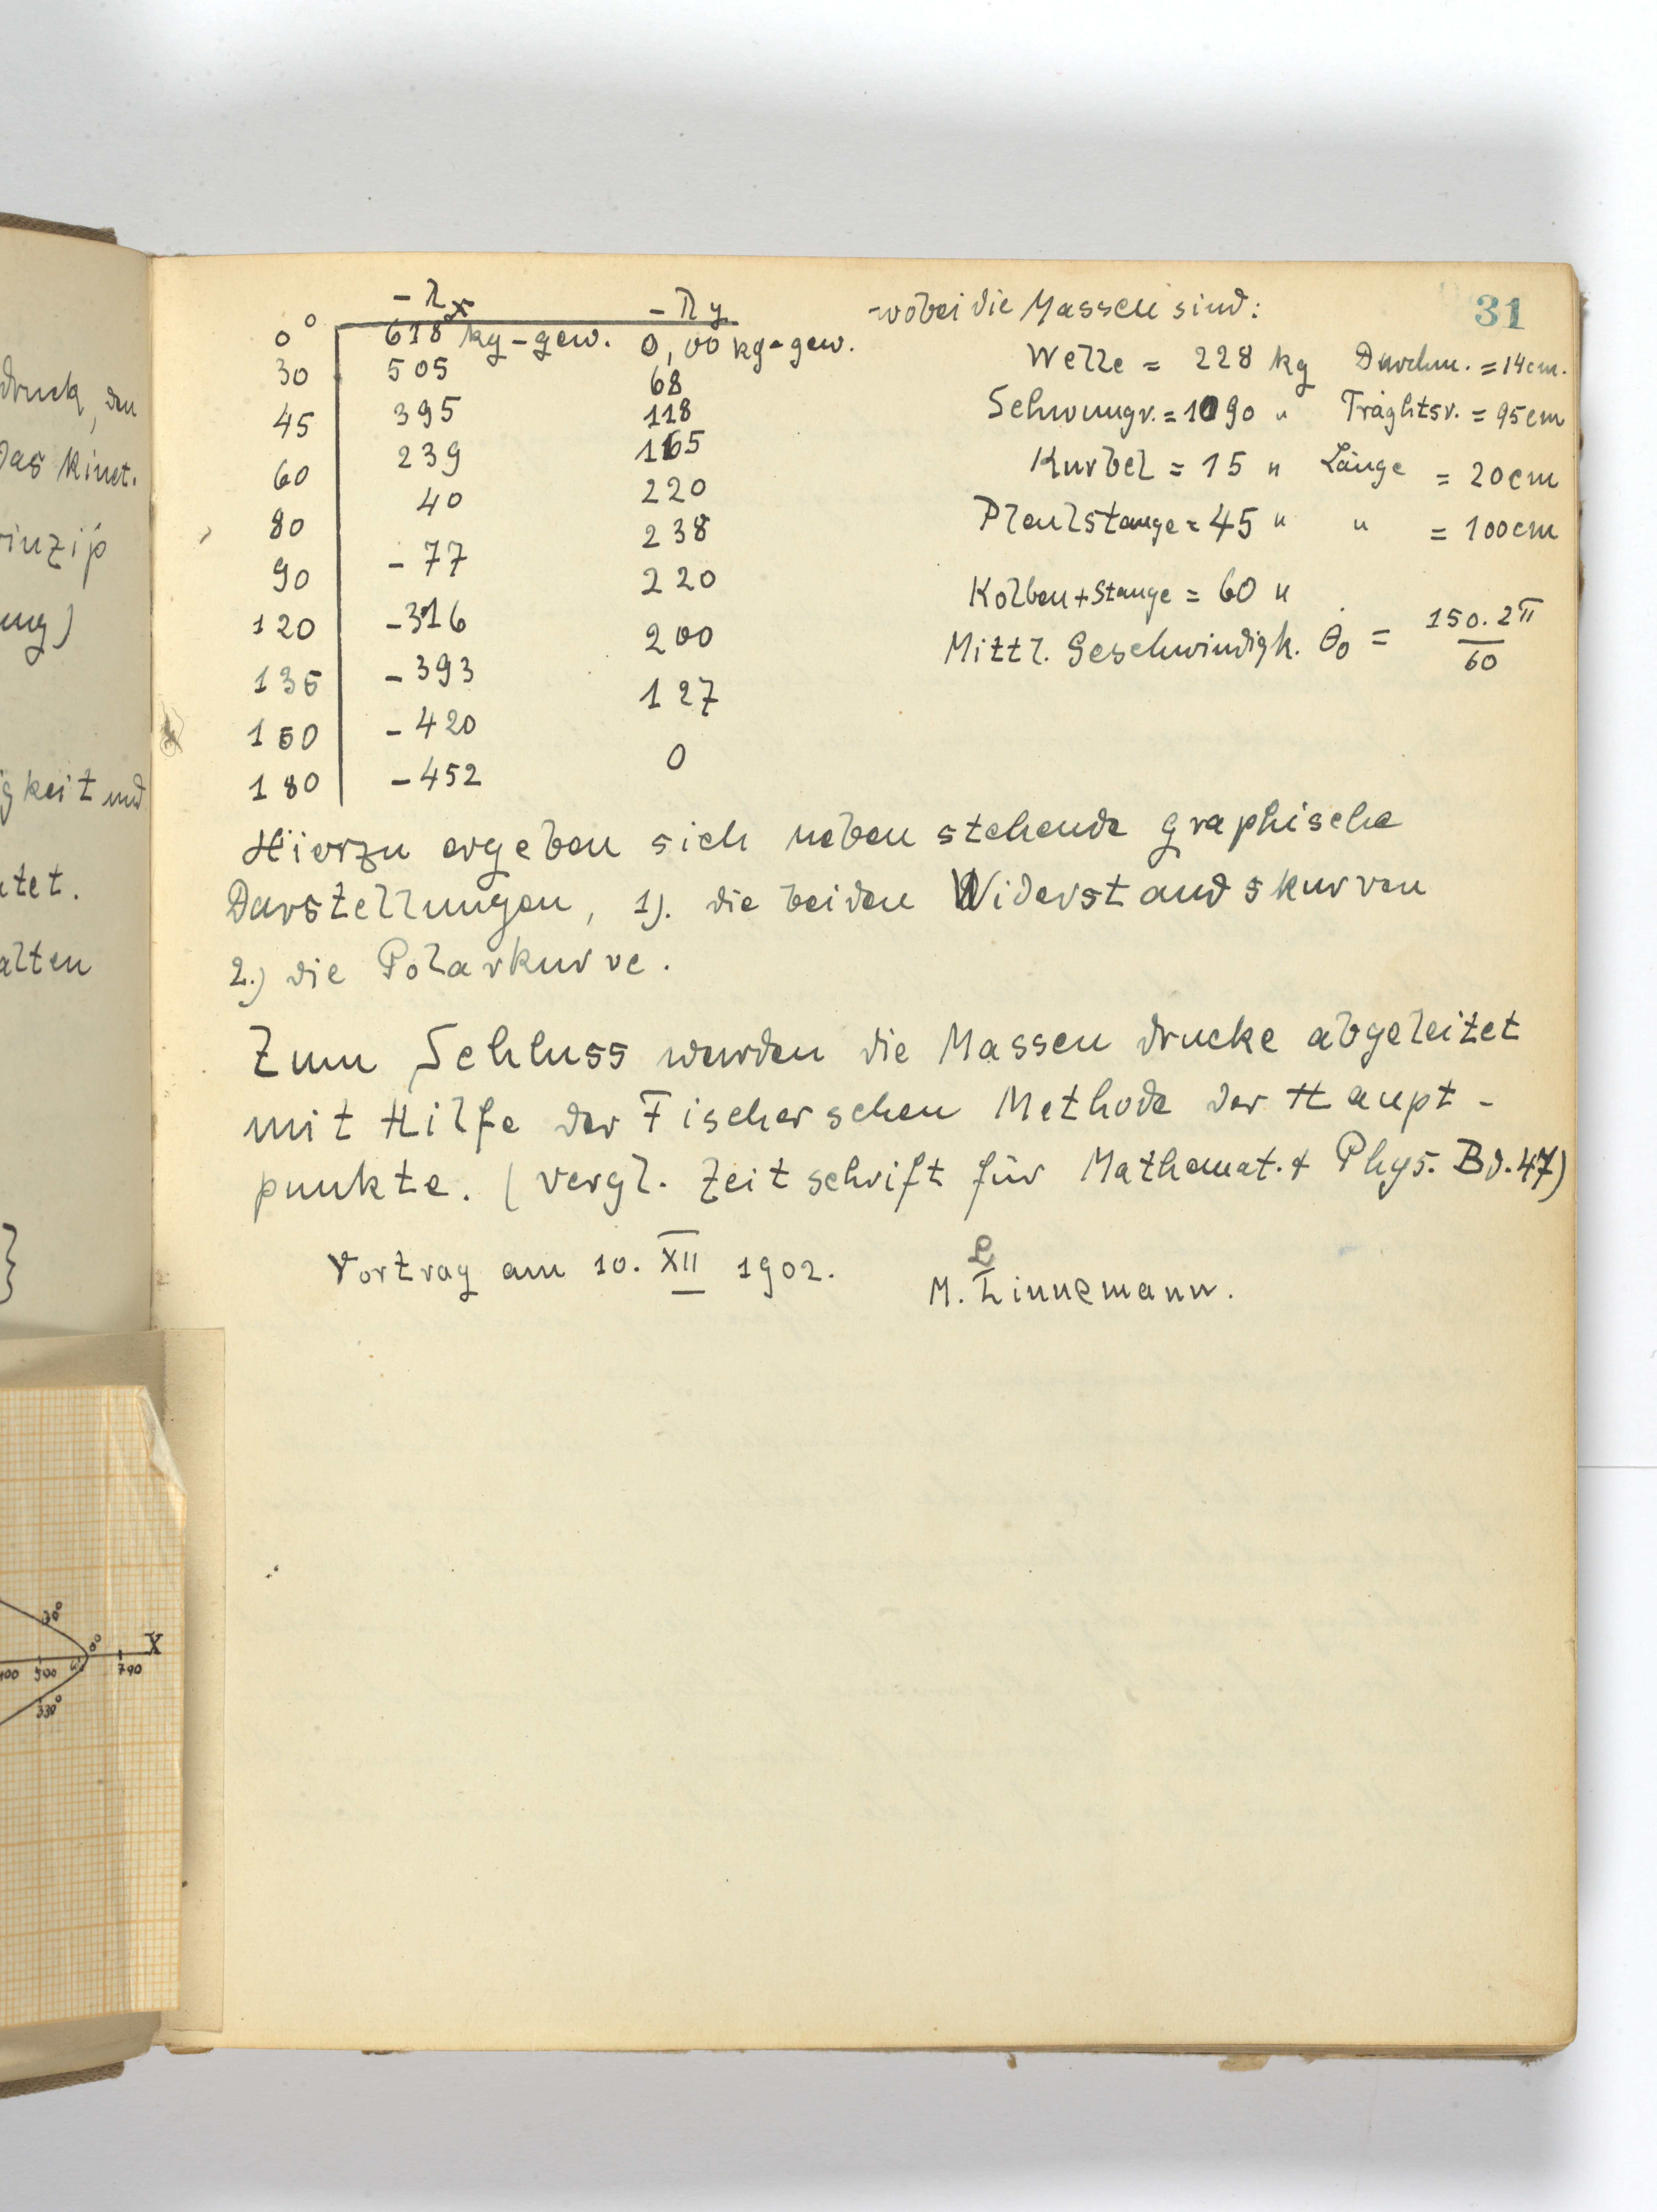 31
- Rx - Ry
0° 618 kg-gew. 0,00 kg-gew.
30 505 68
45 395 118
60 239 165
80 40 220
90 - 77 238
120 - 316 220
135 - 393 200
150 - 420 127
180 - 452 0
wobei die Massen sind:
Welle = 228 kg Durchm. = 14 cm.
Schwungr. = 1090 " Träghtsr. = 95 cm
Kurbel = 15 " Länge = 20 cm
Pleulstange = 45 " " = 100 cm
Kolben + Stange = 60 "
Mittl. Geschwindigk. θ̇₀ = 150. 2π / 60
Hierzu ergeben sich nebenstehende graphische
Darstellungen, 1). die beiden Widerstandskurven
2.) die Polarkurve.
Zum Schluss wurden die Massendrucke abgeleitet
mit Hilfe der Fischerschen Methode der Haupt-
punkte. (vergl. Zeitschrift für Mathemat. + Phys. Bd. 47)
Vortrag am 10. XII 1902.
L
M. Linnemann.
druck, den
Das kinet.
inzip
ung)
igkeit und
tet.
alten
30°
0° X
500 700
330°